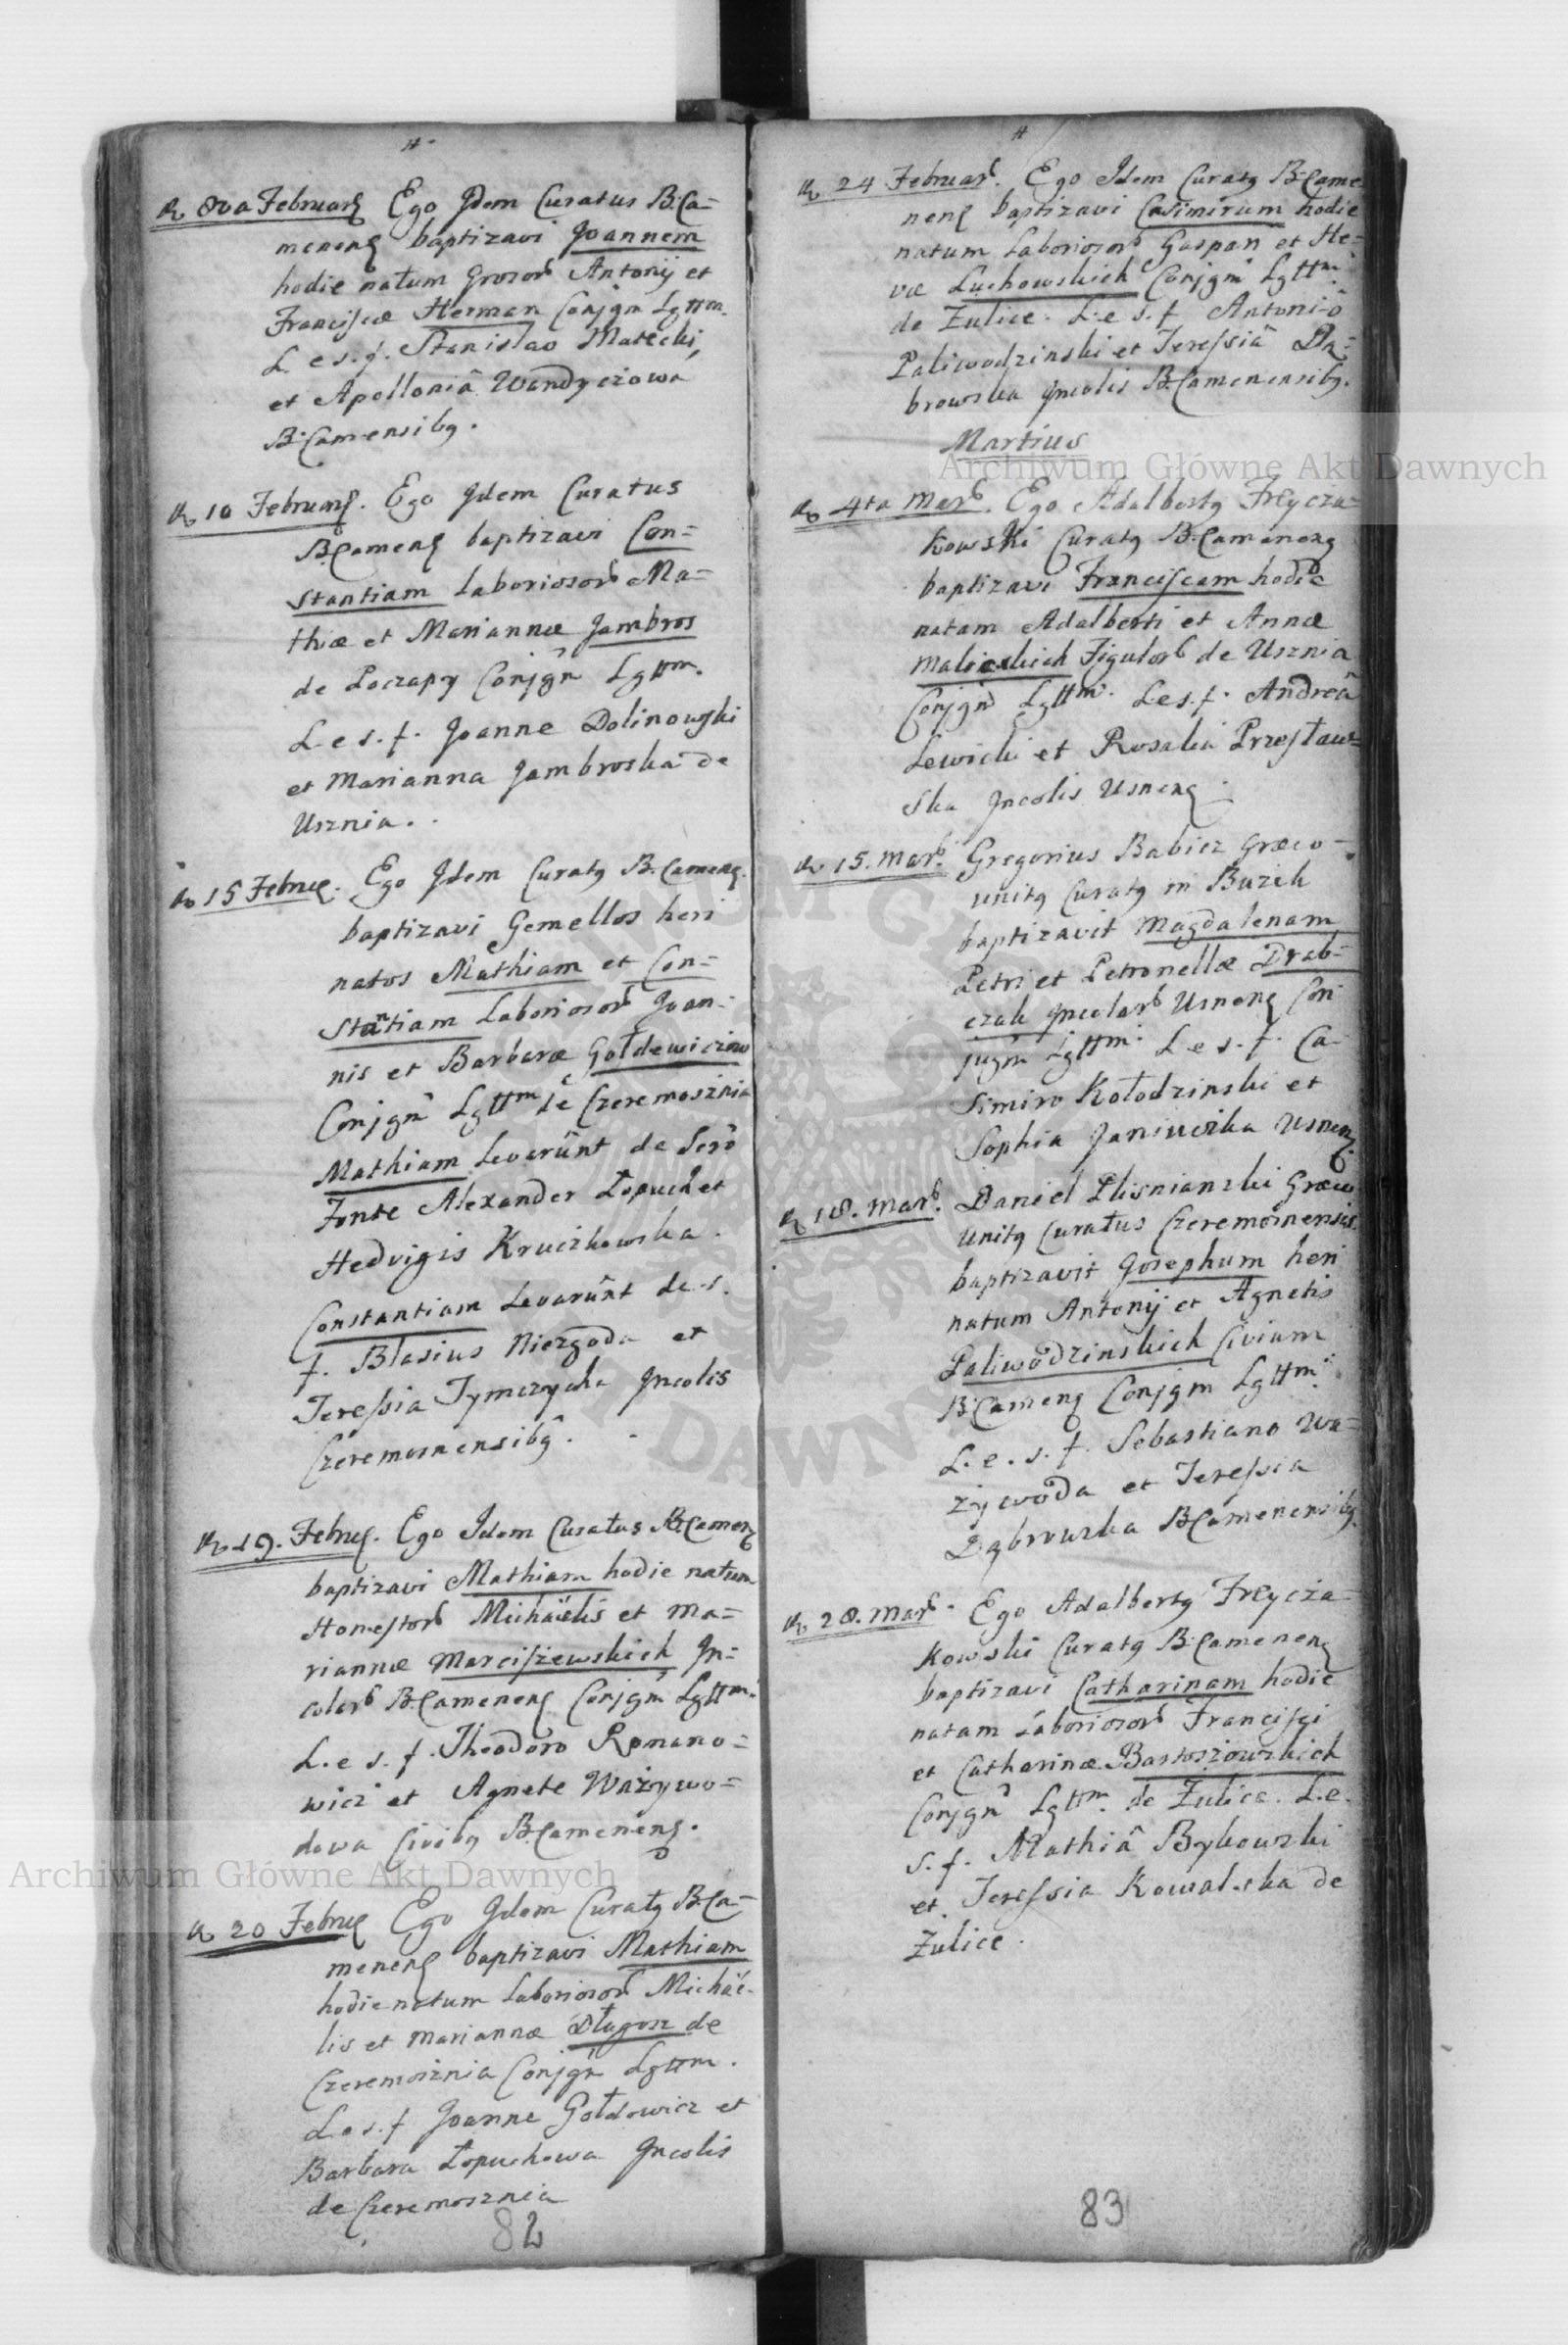 8va Februarij Ego Idem Curatus B:Ca=
menens baptizavi Joannem
hodie natum Antonij et
Franciscæ Herman Conjgm Lgttm.
L. e s. f. Stanislao Małecki,
et Apolloniâ Wandyczowa
B:Camensibg.
10 Februarij. Ego Idem Curatus
B:Camens baptizavi Con=
stantiam Laboriosor Ma=
thiæ et Mariannæ Jambros
de Poczapy Conjgm Lgttm.
L. e s. f. Joanne Dolinowski
et Marianna Jambroska de
Usznia.
15 Februs. Ego Idem Curatg B. Camens.
baptizavi Gemellos heri
natos Mathiam et Con=
stantiam Laboriosor Joan=
nis et Barbaræ Gołdewiczow
Conjgm Lgttm de Czeremosznia
Mathiam Levarunt de Scrô
Fonte Alexander Łopuch et
Hedvigis Kruczkowska.
Constantiam Levarunt de s.
f. Blasius Niezgoda et
Teressia Tymczycha Incolis
Czeremosnensibg.
19. Februs. Ego Idem Curatus B:Camens
baptizavi Mathiam hodie natum
Honestor Michaëlis et Ma=
riannæ Marciszewskich In=
color B:Camenens Conjgm Lgttm.
L. e s. f. Theodoro Romano=
wicz et Agnete Ważywo=
dowa Civibg B:Camenens.
20 Februs Ego Idem Curatg B:Ca=
menens baptizavi Mathiam
hodie natum Laboriosor Michaë-
lis et Mariannæ Długosz de
Czeremosznia Conjgm Lgttm.
L e s. f Joanne Gołdowicz et
Barbara Łopuchowa Incolis
de Czeremosznia
82
24 Februar. Ego Idem Curatg B:Came
nens baptizavi Casimirum hodie
natum Laboriosor Gaspari et He=
væ Luchowskich Conjgm Lgttm.
de Zulice. L. e s. f Antonio
Paliwodzinski et Teressiâ Dą=
browska Incolis B:Camenensibg.
Martius
4ta Mar. Ego Adalbertg Freycza=
kowski Curatg B:Camenens
baptizavi Franciscam hodie
natam Adalberti et Annæ
Malickich Figulor de Usznia
Conjgm Lgttm. L e s. f. Andreâ
Lewicki et Rosalia Przesław=
ska Incolis Usnens.
15. Mar. Gregorius Babicz Græco-
unitg Curatg in Buzek
baptizavit Magdalenam
Petri et Petronellæ Drab=
czak Incolar Usnens Con
jugm Lgttm. L e s. f. Ca
simiro Kołodzinski et
Sophia Janiuczka Usnens.
18. Mar. Daniel Plisnianski Græco
Unitg Curatus Czeremosnensis
baptizavit Josephum heri
natum Antonij et Agnetis
Paliwodzinskich Civium
B:Camens Conjgm Lgttm.
L. e. s. f. Sebastiano Wa=
żywoda et Teressia
Dąbrowska B:Camenensibg.
28. Mar. Ego Adalbertg Freycza=
kowski Curatg B:Camenens
baptizavi Catharinam hodie
natam Laboriosor Francisci
et Catharinæ Bartoszowskich
Conjgm Lgttm. de Zulice. L. e.
s. f. Mathiâ Bykowski
et Teressia Kowalska de
Zulice.
83
Archiwum Główne Akt Dawnych
Archiwum Główne Akt Dawnych